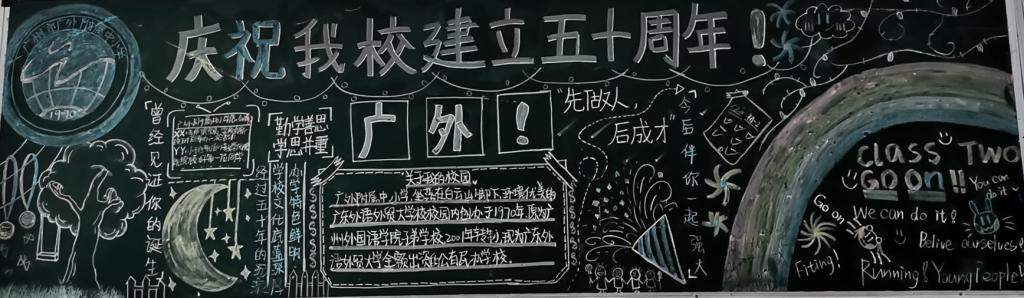 庆祝我校建立五十周年!
1970
曾经见证你的诞生
勤学善思
学思并重
办学特色鲜明
学校文化底蕴深
经过五十年的沉淀
广外!
"先做人,
后成才"
今后伴你一起强大
关于我的校园
广外附属中小学,坐落在白云山脚下,环境优美的
广东外语外贸大学校校园内,创办于1970年,原为广
州外国语学院子弟学校,200年转制,成为广东外
语外贸大学全额出资的公有民办学校。
CLASS TWO
GO on!!
You can do it!
We can do it!
Go on
Belive ourselves!
Fitting!
Running! Young People!